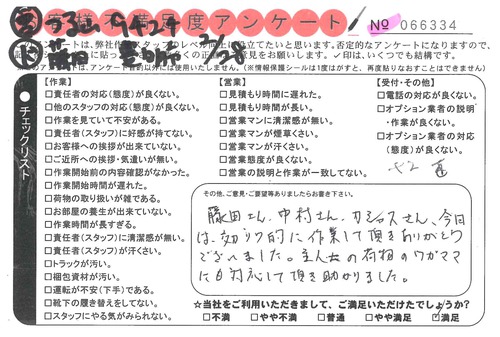 お客様不満足度アンケート
№ 066334
2/28
アンケートは、弊社
スタッフのレベル向上に役立てたいと思います。否定的なアンケートになりますので、
意見をお願いします。✓印は、いくつでも結構です。
アンケート目的以外には使用いたしません。(※情報保護シールは1度はがすと、再度貼りなおすことはできません)
●チェックリスト
【作業】
□責任者の対応(態度)が良くない。
□他のスタッフの対応(態度)が良くない。
□作業を見ていて不安がある。
□責任者(スタッフ)に好感が持てない。
□お客様への挨拶が出来ていない。
□ご近所への挨拶・気遣いが無い。
□作業開始前の内容確認がなかった。
□作業開始時間が遅れた。
□荷物の取り扱いが雑である。
□お部屋の養生が出来ていない。
□作業時間が長すぎる。
□責任者(スタッフ)に清潔感が無い。
□責任者(スタッフ)が汗くさい。
□トラックが汚い。
□梱包資材が汚い。
□運転が不安(下手)である。
□靴下の履き替えをしてない。
□スタッフにやる気がみられない。
【営業】
□見積もり時間に遅れた。
□見積もり時間が長い。
□営業マンに清潔感が無い。
□営業マンが煙草くさい。
□営業マンが汗くさい。
□営業態度が良くない。
□営業の説明と作業が一致してない。
【受付・その他】
□電話の対応が良くない。
□オプション業者の説明
・作業が良くない。
□オプション業者の対応
(態度)が良くない。
その他、ご意見・ご要望等ありましたらお書き下さい。
藤田さん、中村さん、カシウスさん、今日
は、効リツ的に作業して頂きありがとう
ございました。主人女の荷物のワガママ
にも対応して頂き助かりました。
☆当社をご利用いただきまして、ご満足いただけたでしょうか?
□不満 □やや不満 □普通 □やや満足 ☑満足